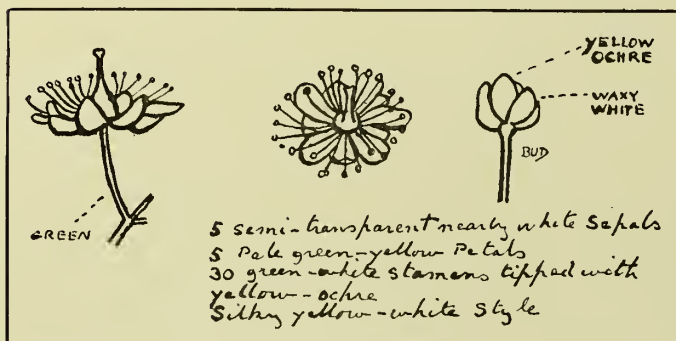 YELLOW
OCHRE
WAXY
WHITE
BUD
GREEN
5 semi-transparent nearly white Sepals
5 Pale green-yellow Petals
30 green-white Stamens tipped with
yellow-ochre
Silky yellow-white Style